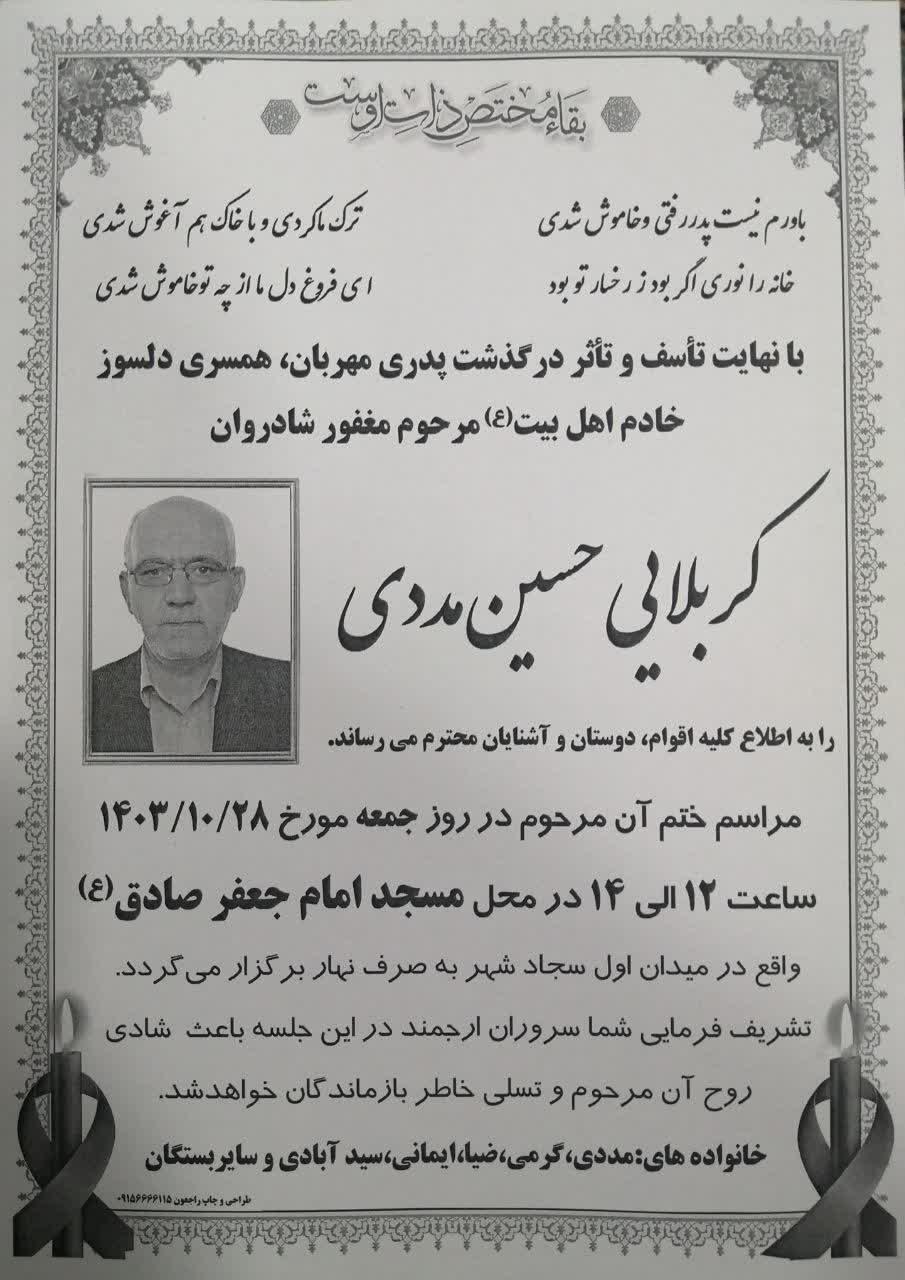 بقاء مختص ذات اوست
باورم نیست پدر رفتی و خاموش شدی ترک ما کردی و با خاک هم آغوش شدی
خانه را نوری اگر بود ز رخسار تو بود ای فروغ دل ما از چه تو خاموش شدی
با نهایت تأسف و تأثر درگذشت پدری مهربان، همسری دلسوز
خادم اهل بیت(ع) مرحوم مغفور شادروان
کربلایی حسین مددی
را به اطلاع کلیه اقوام، دوستان و آشنایان محترم می رساند.
مراسم ختم آن مرحوم در روز جمعه مورخ ۱۴۰۳/۱۰/۲۸
ساعت ۱۲ الی ۱۴ در محل مسجد امام جعفر صادق(ع)
واقع در میدان اول سجاد شهر به صرف نهار برگزار می‌گردد.
تشریف فرمایی شما سروران ارجمند در این جلسه باعث شادی
روح آن مرحوم و تسلی خاطر بازماندگان خواهدشد.
خانواده های:مددی،گرمی،ضیا،ایمانی،سید آبادی و سایربستگان
طراحی و چاپ راجعون ۰۹۱۵۶۶۶۶۱۱۵